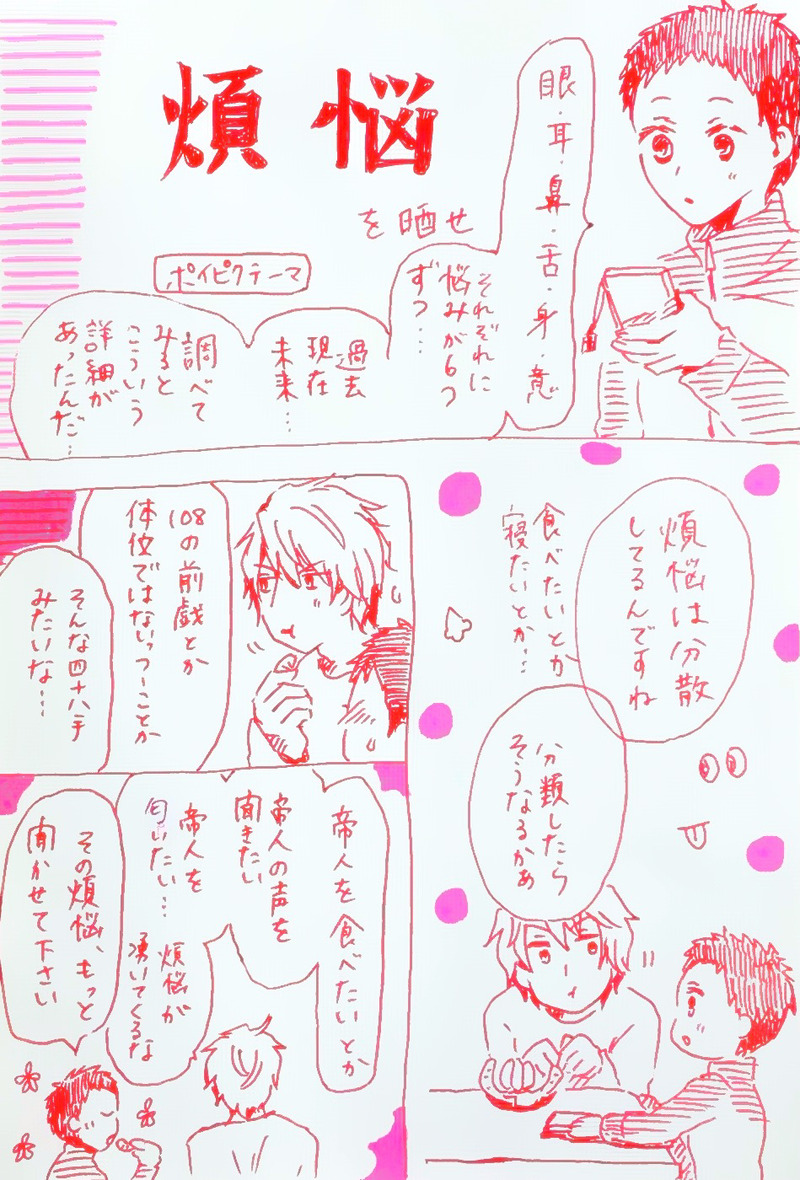 煩悩
を晒せ
ポイピクテーマ
眼・耳・鼻・舌・身・意
それぞれに
悩みが6つ
ずつ…
過去
現在
未来…
調べて
みると
こういう
詳細が
あったんだ…
煩悩は分散
してるんですね
食べたいとか
寝たいとか…
分類したら
そうなるかぁ
108の前戯とか
体位ではないっつーことか
そんな四十八手
みたいな…
帝人を食べたいとか
帝人の声を
聞きたい
帝人を
匂いたい…
煩悩が
湧いてくるな
その煩悩、もっと
聞かせて下さい